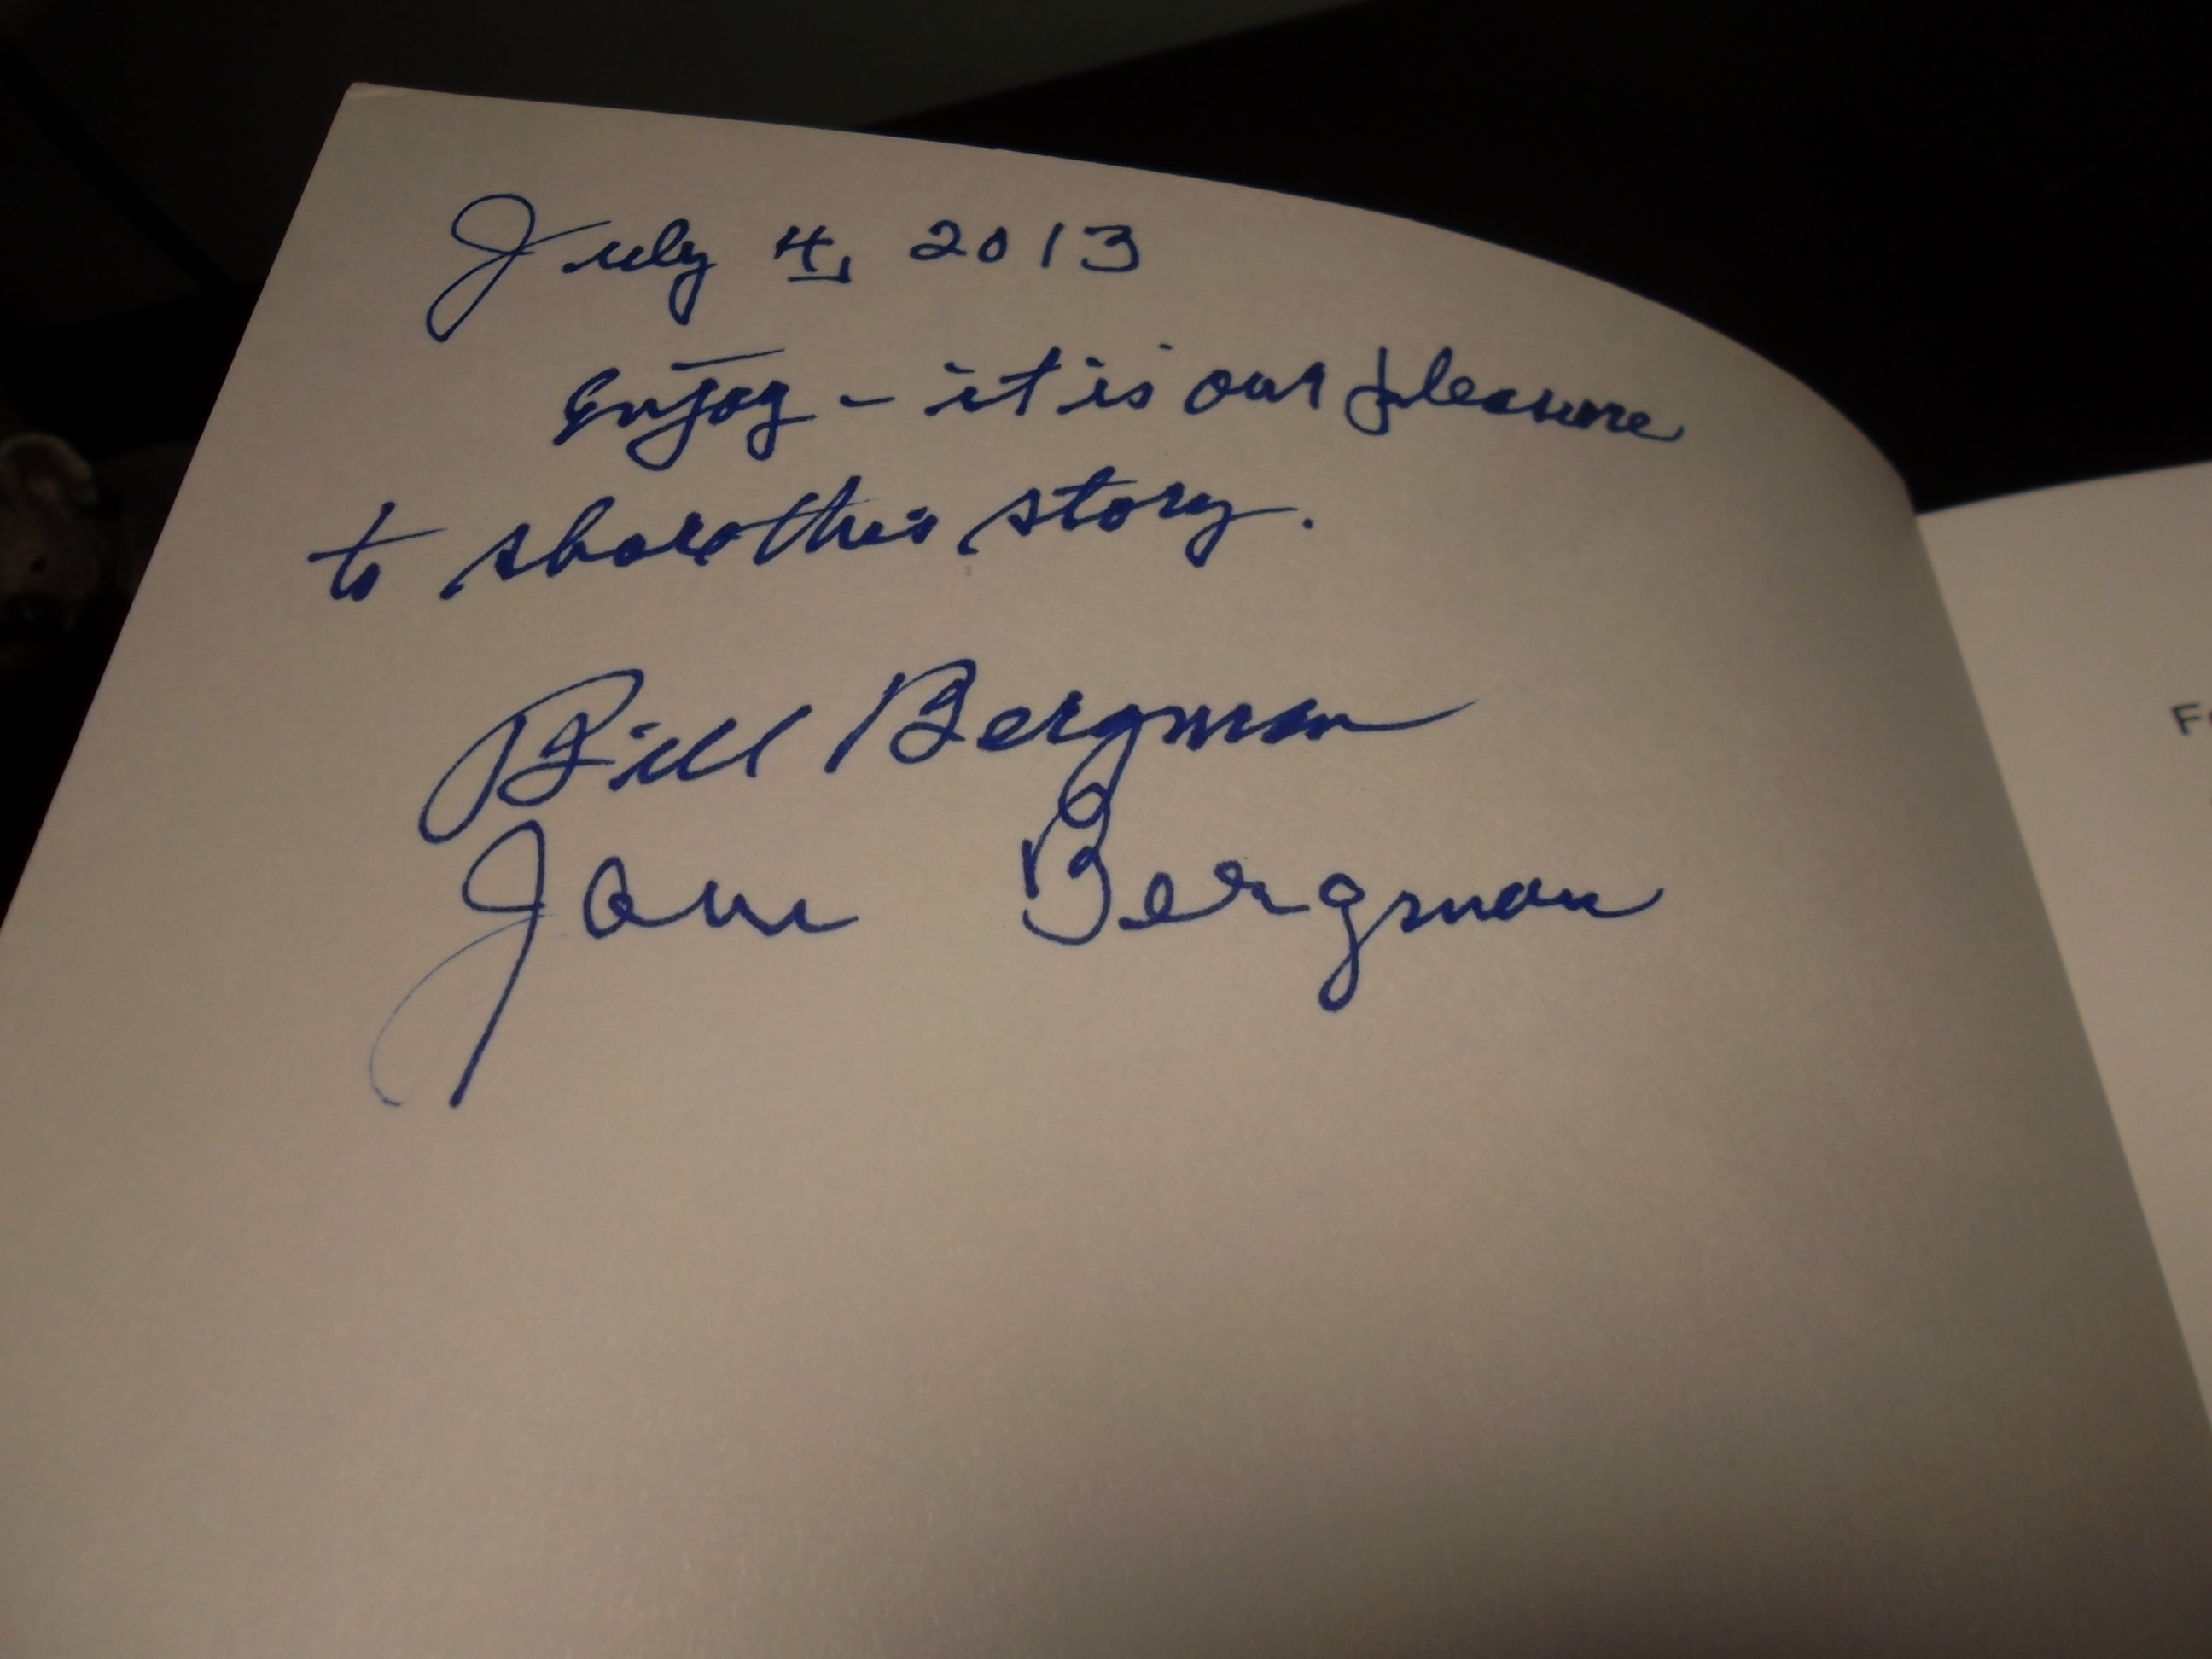 July 4, 2013
Enjoy - it is our pleasure
to share this story.
Bill Bergman
Jane Bergman